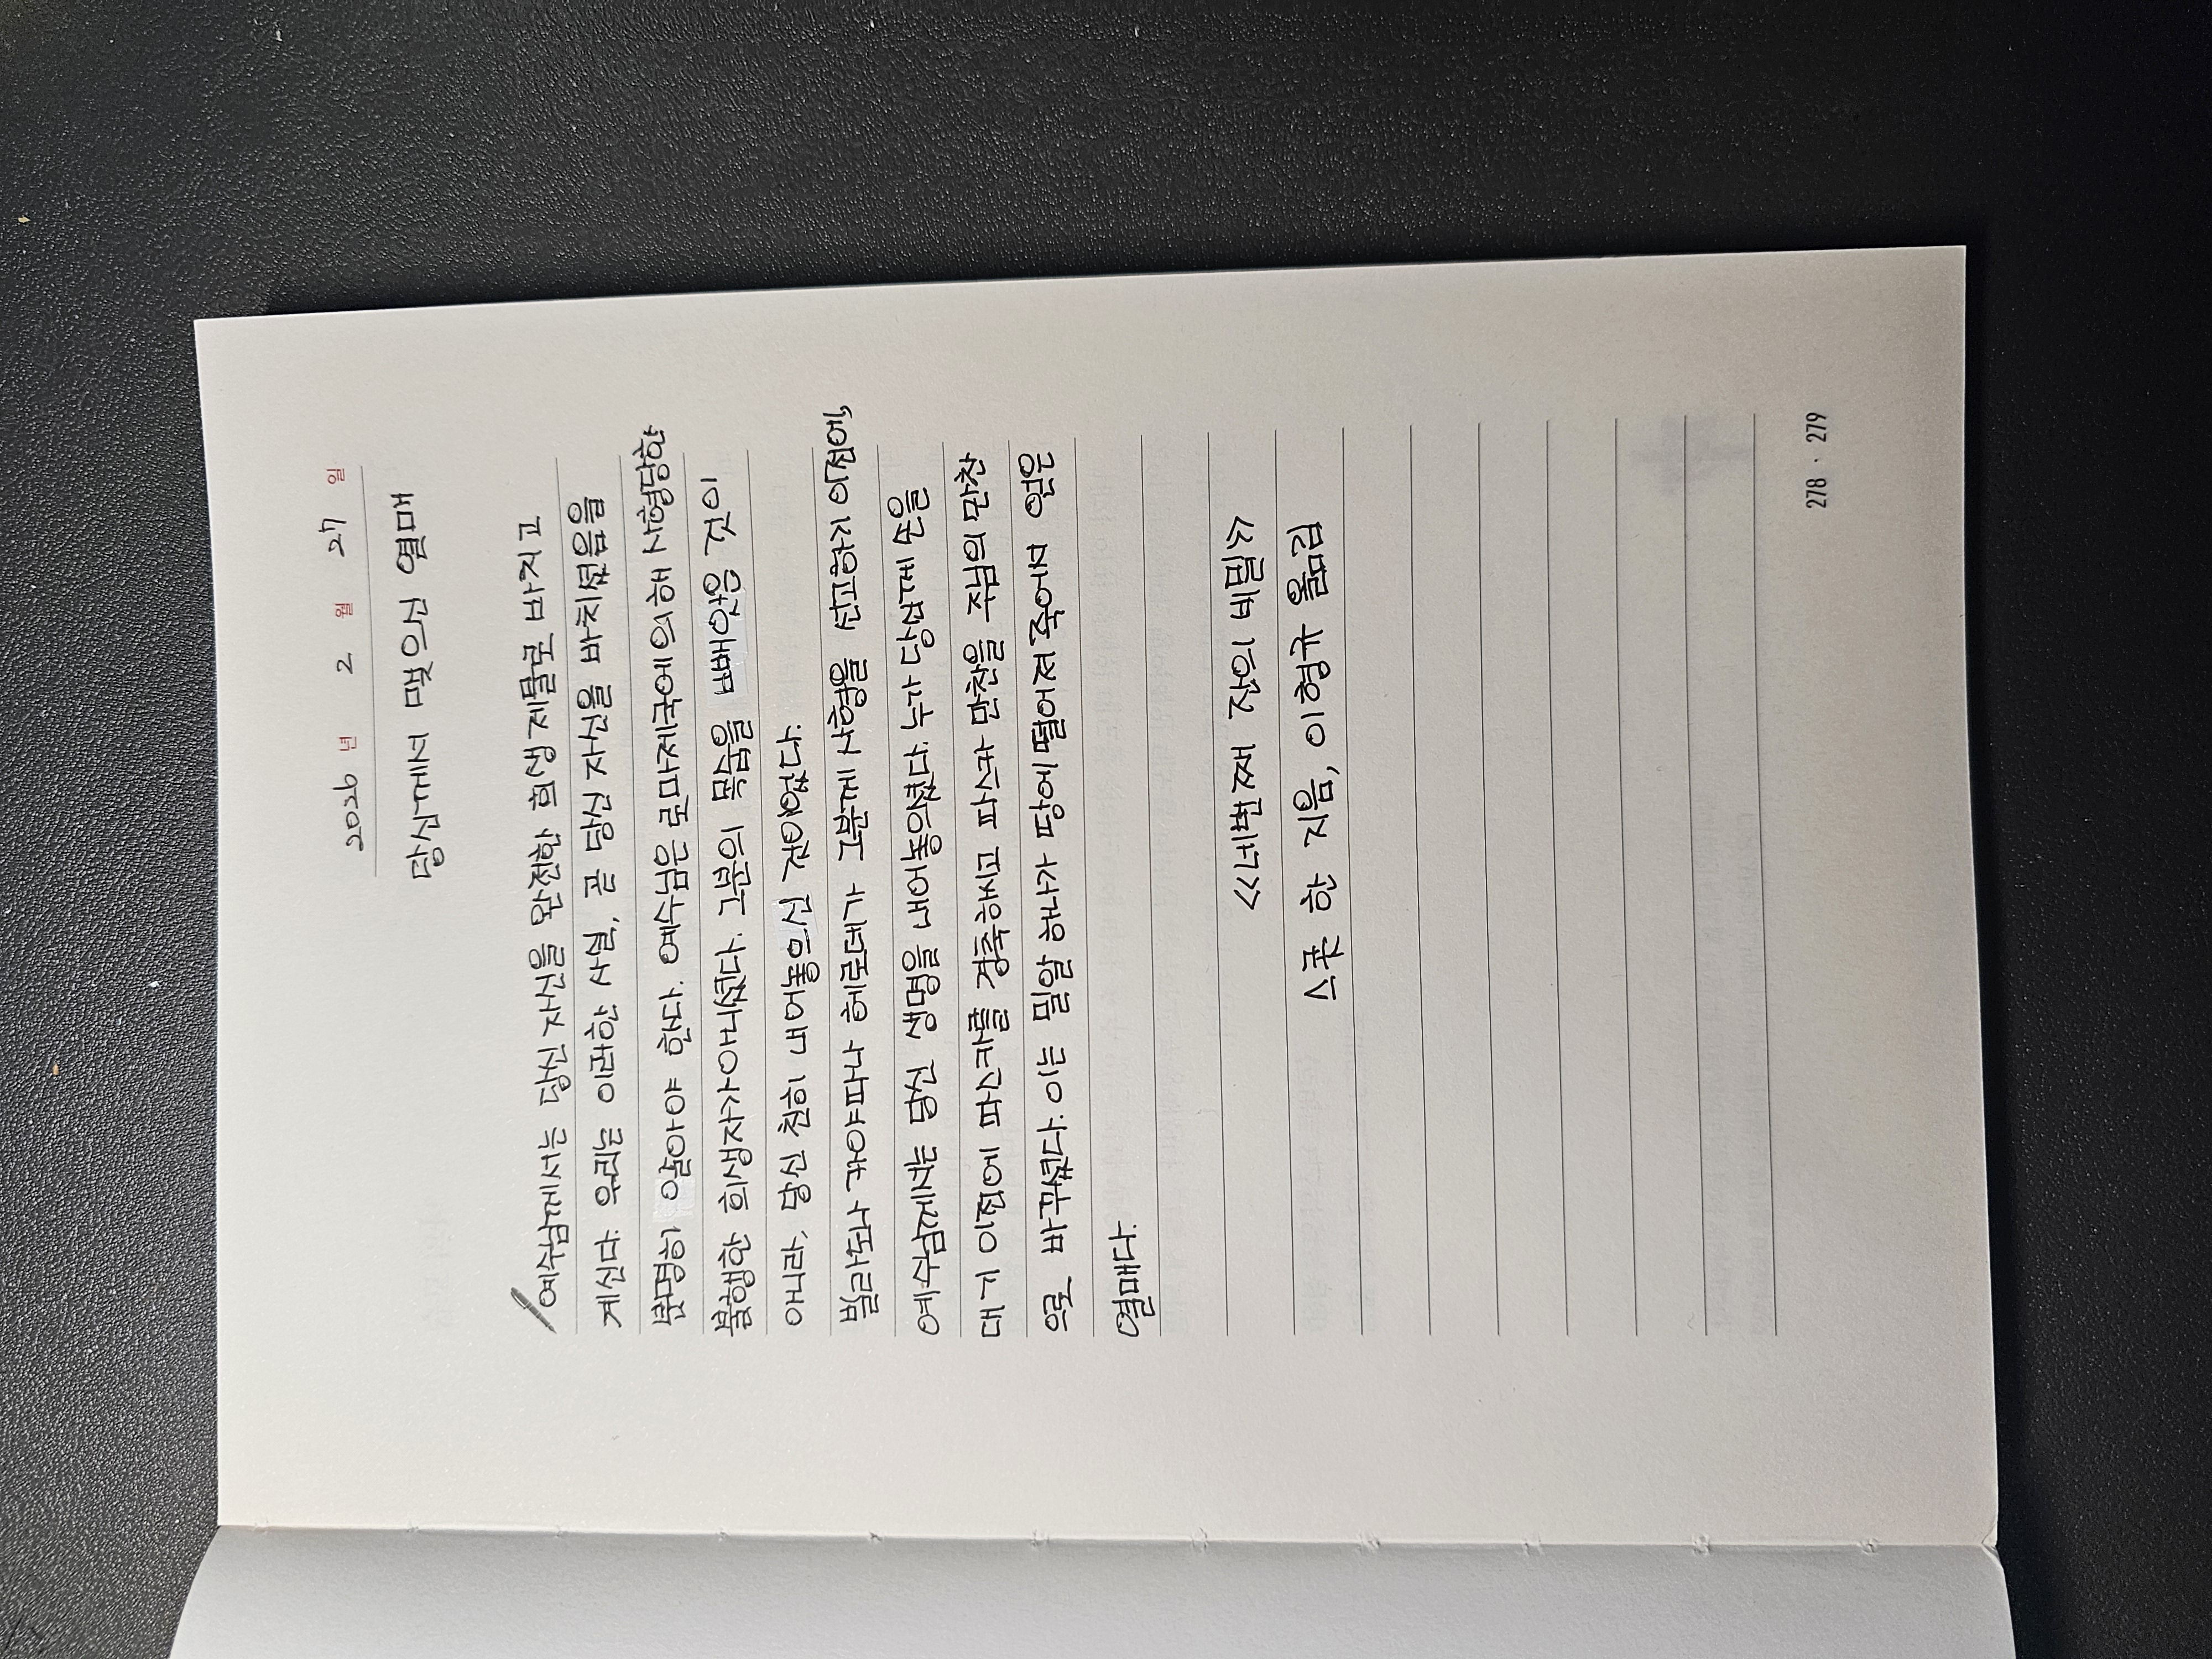 2026 년 2 월 27 일
당신께서 맺으신 열매
예수님께서는 당신 자신을 완전한 희생 제물로 바치고
계신다. 우리는 이러한 사실, 곧 당신 자신을 바치셨음을
분명히 알아야 한다. 예수님은 로마제국에 의해 사형당한
불행한 희생자가 아니셨다. 그분의 목숨을 빼앗은 것이
아니라, 당신 친히 내어놓으신 것이었다.
빌라도나 카야파나 헤로데가 그분께 사형을 선고하기 이전에,
예수님께서는 당신 생명을 내어놓으셨다. 누가 당범께 돈을
대기 이전에 파스카를 경축하시고 파스카 만찬을 주님의 만찬
으로 바꾸셨다. 이는 밀알 하나가 땅에 떨어져 죽어서 맺은
열매다.
<<네번째 잔의 비밀>>
스콧 한 지음, 이형규 옮김
278 · 279